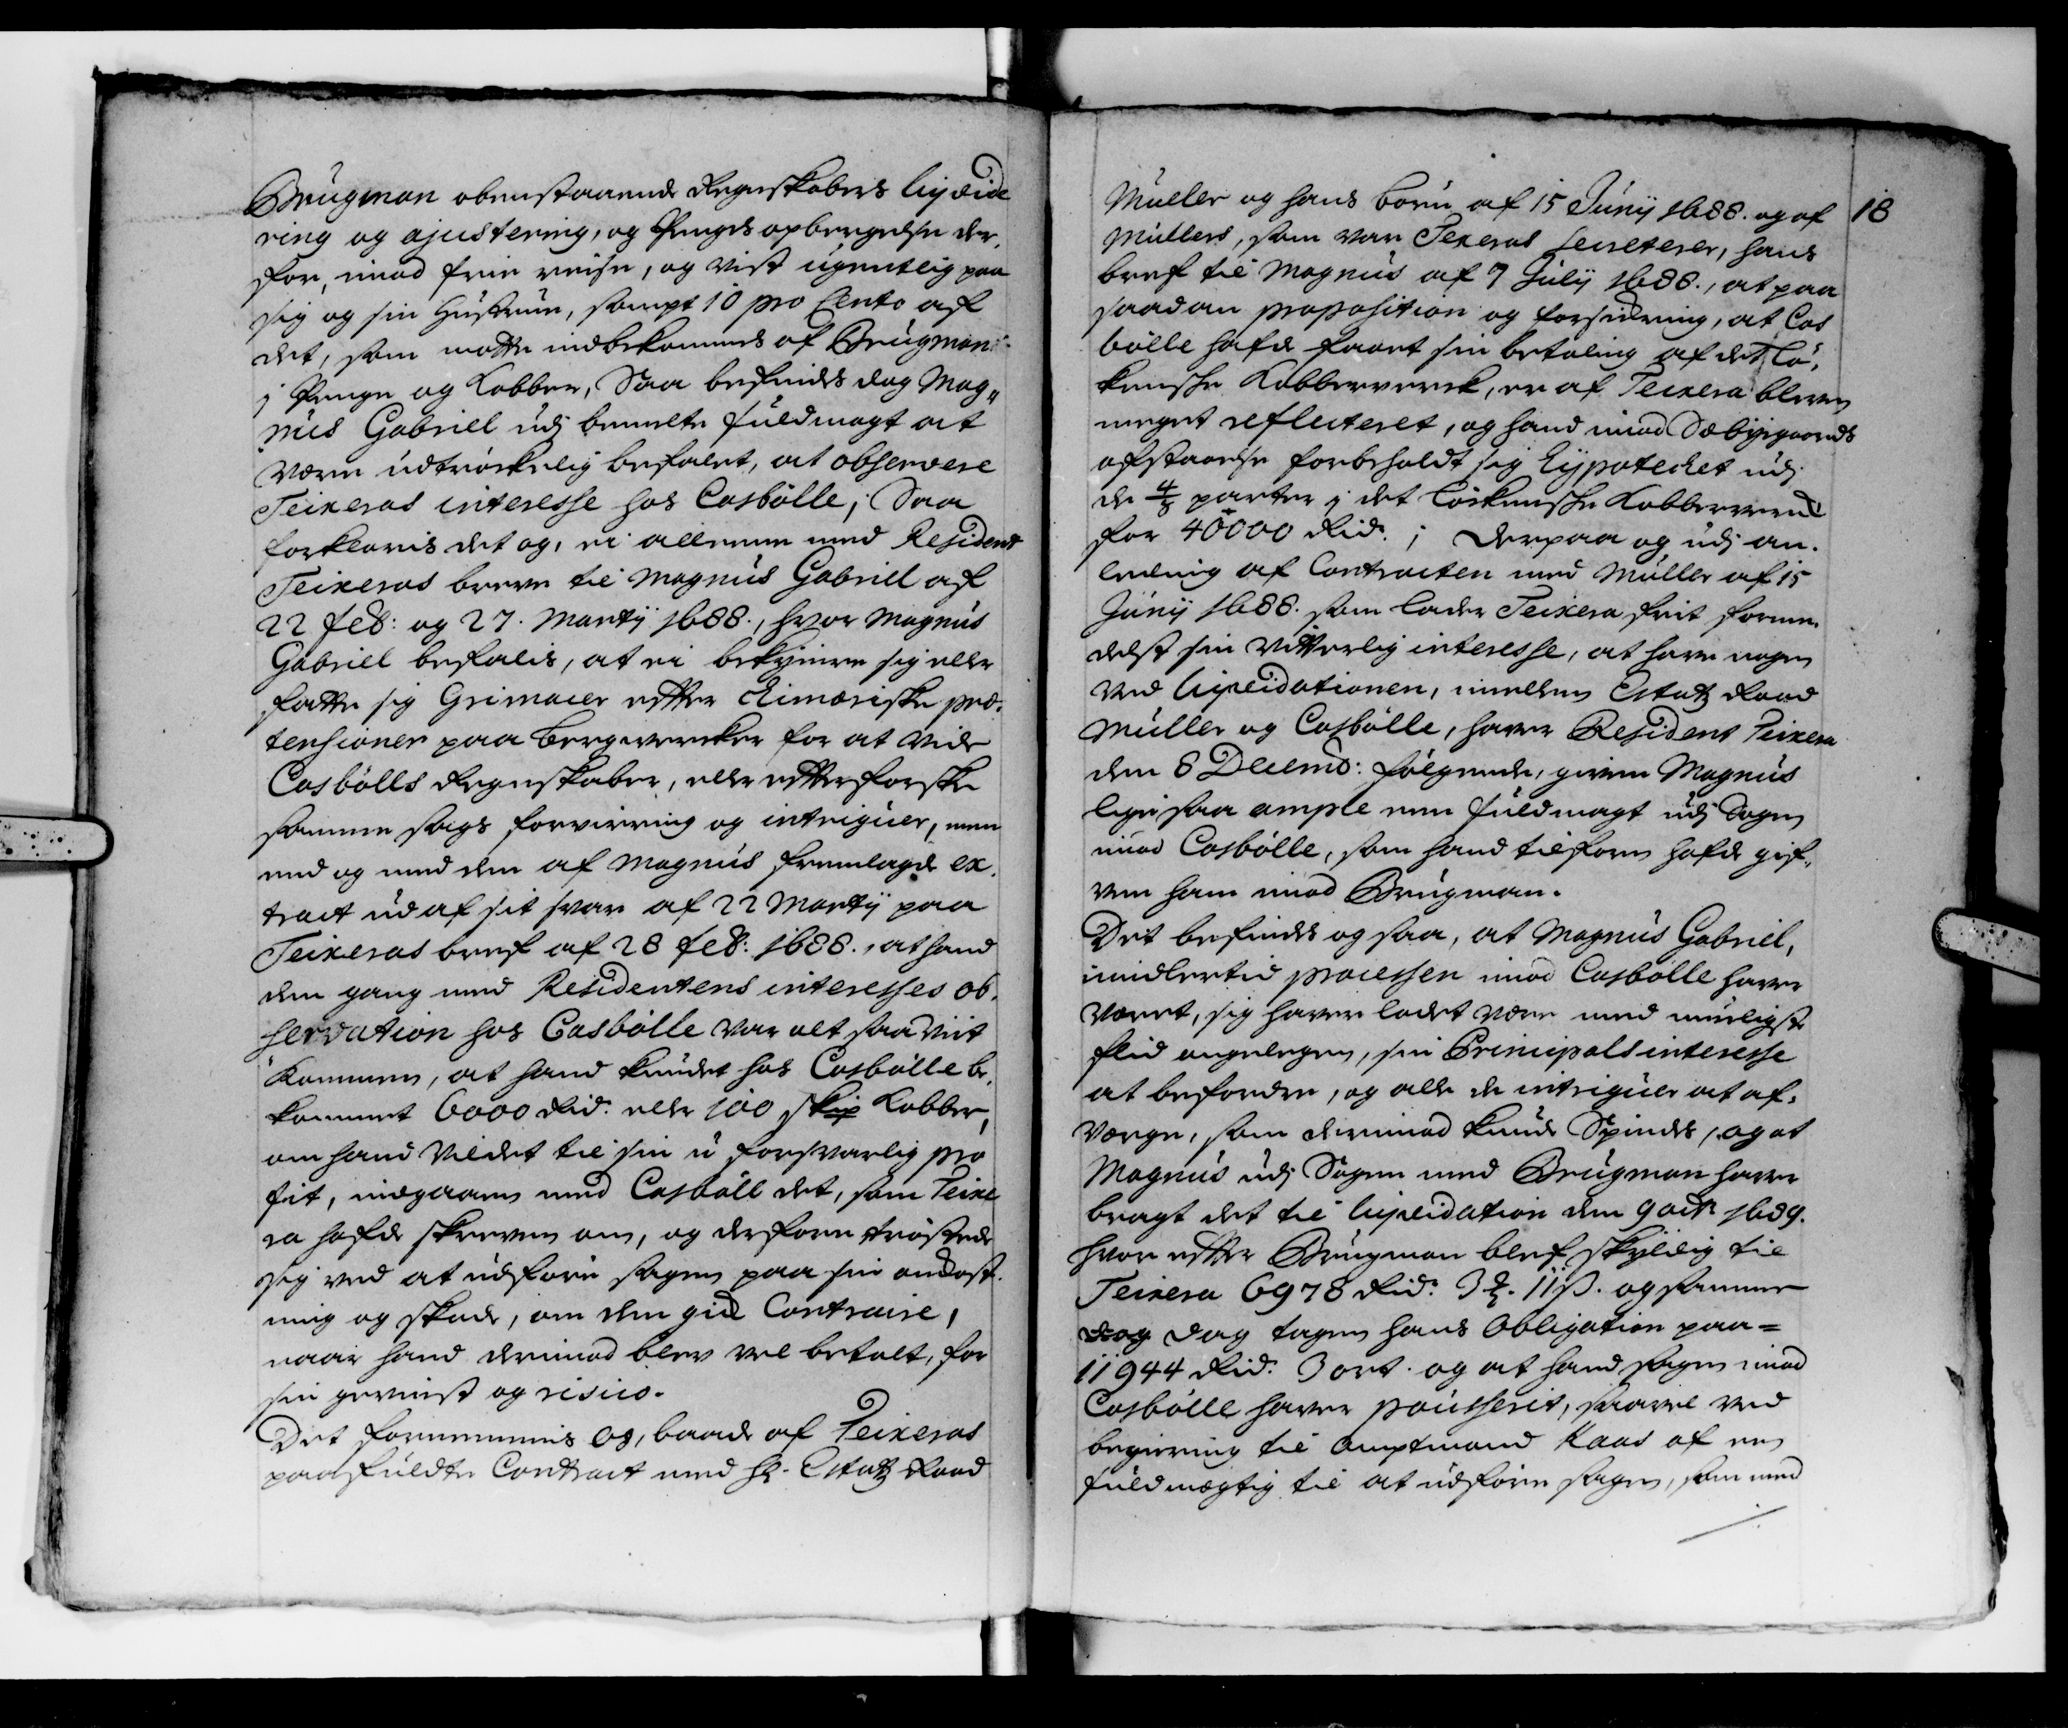 Brugman obenstaaende Regnskabers liqvide
ring og ajustering, og Penges opbergelse der,
for, imod frie reise, og vist ugentlig paa
sig og sin Hustrue, sampt 10 pro Cento af
det, som motte indbekommes af Brugman
i Penge og Kobber, Saa befindes dog Mag„
nus Gabriel udj bemelte fuldmagt at
være udtrøckelig befalet, at observere
Teixeras interesse hos Casbølle; Saa
forklaris det og, ei alleene med Resident
Teixeras breve til Magnus Gabriel af
22 feb: og 27. Martij 1688., hvor Magnus
Gabriel befalis, at ei bekymre sig eller
fatte sig Grimacer efter Chimæriske præ,
tensioner paa bergvercker for at vide
Casbølls Regnskaber, eller efterforske
samme sags forvirring og intriguer, men
end og med den af Magnus fremlagde ex,
tract ud af sit svar af 22 Martij paa
Teixeras bref af 28 feb: 1688., at hand
den gang med Residentens interesses ob,
servation hos Casbølle var alt saa viit
kommen, at hand kundet hos Casbølle be,
kommet 6000 Rid: eller 100 skip Kobber,
om hand vildet til sin u forsvarlig pro
fit, indgaaen med Casbøll det, som Teixe
ra hafde skreven om, og derforre trøstede
sig ved at udføre sagen paa sin ombost,
ning og skade, om den gik Contraire,
naar hand derimod blev vel betalt, for
sin gevinst og risico.
Det fornemmis og, baade af Teixeras
paafuldte Contract med Hr. Estatz Raad
18
Muller og hans børn af 15 Junij 1688. og af
Mullers, som var Texeras Secreterer, hans
bref til Magnus af 7 Julij 1688., at paa
saadan proposition og forsickring, at Cas
bølle hafde faaet sin betaling af det Lø,
kenske Kobberverck, er af Teixera bleven
meget reflecteret, og hand imod Sæbygaards
afstaaelse forbeholdt sig Hypotechet udj
de 4/8 parter i det Løckenske Kobberverck
for 40000 Rid: ; Derpaa og udj an,
ledning af Contracten med Müller af 15
Junij 1688. som lader Teixera frit formee,
delst sin vitterlig interesse, at have nogen
ved liqvidationen, imellem Estatz Raad
Müller og Casbølle, haver Resident Teixera
den 8 Decemb: følgende, given Magnus
lige saa ample een fuldmagt udj Sagen
imod Casbølle, som hand tilforn hafde gif,
ven ham imod Brugman.
Det befindes og saa, at Magnus Gabriel,
imidlertid processen imod Casbølle haver
været, sig haver ladet være med muligste
flid angelegen, sin Principals interesse
at befordre, og alle de intriguer at af,
værge, som derimod kunde Spindes, og at
Magnus udj Sagen med Brugman haver
bragt det til liqvidation den 9 oct: 1689.
hvor efter Brugman blef skyldig til
Teixera 6978 Rid: 3 ℔. 11 ß. og samme
dog dag tagen hans Obligation paa=
11944 Rid: 3 ort. og at hand sagen imod
Casbølle haver pousserit, saavel ved
begiering til Amptmand Kaas af een
fuldmægtig til at udføre sagen, som med